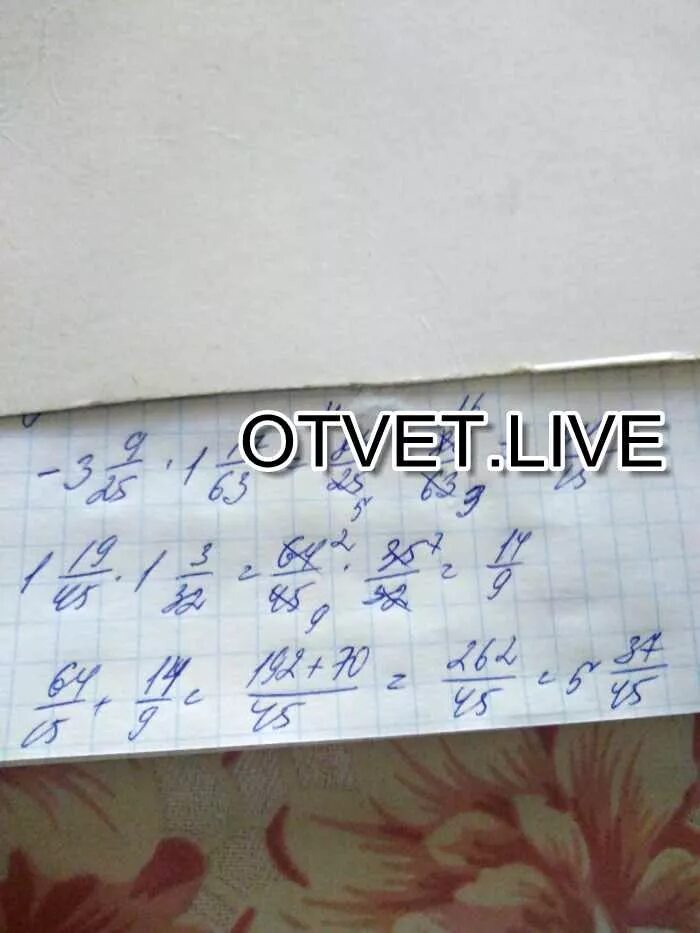 -3 9/25 · 1 17/63 = 84/25 · 80/63 =
OTVET.LIVE
1 19/45 · 1 3/32 = 64/45 · 35/32 = 14/9
64/15 + 14/9 = 192+70/45 = 262/45 = 5 37/45